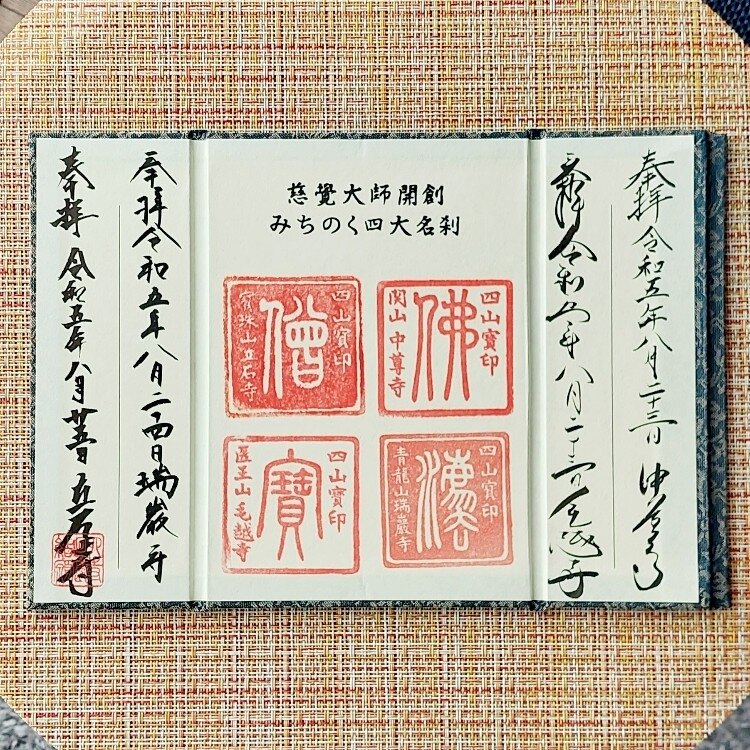 奉拝 令和五年八月二十三日 中尊寺
奉拝 令和五年八月二十三日 毛越寺
慈覺大師開創
みちのく四大名刹
四山寶印
佛
関山 中尊寺
四山寶印
僧
寳珠山立石寺
四山寶印
灋
青龍山瑞巖寺
四山寶印
寶
醫王山 毛越寺
奉拝令和五年八月二十四日瑞巌寺
奉拝 令和五年八月廿五日 立石寺